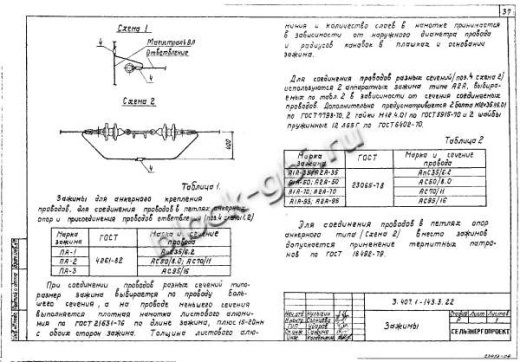 39
Схема 1
Магистраль ВЛ
Ответвление
Схема 2
Таблица 1
Зажимы для анкерного крепления
проводов, для соединения проводов в петлях анкерных
опор и присоединения проводов ответвления (поз.4 схемы 1,2)
Марка зажима
ГОСТ
Марка и сечение провода
ПА-1
АпС35/6.2
ПА-2
4261-82
АС50/8.0; АС70/11
ПА-3
АС95/16
При соединении проводов разных сечений типо-
размер зажима выбирается по проводу боль-
шего сечения, а на проводе меньшего сечения
выполняется плотная намотка листового алюми-
ния по ГОСТ 21631-76 по длине зажима, плюс 15-20мм
с обоих сторон зажима. Толщина листового алю-
миния и количество слоев в намотке принимается
в зависимости от наружного диаметра провода
и радиусов канавок в плашках и основании
зажима.
Для соединения проводов разных сечений (поз.4 схема 2)
используются 2 аппаратных зажима типа А2А, выбира-
емых по табл. 2 в зависимости от сечения соединяемых
проводов. Дополнительно предусматривается 2 болта
по ГОСТ 7798-70, 2 гайки по ГОСТ 5915-70 и 2 шайбы
пружинные по ГОСТ 6402-70.
Таблица 2
Марка зажима
ГОСТ
Марка и сечение провода
А1А-35, А2А-35
АпС35/6.2
А1А-50, А2А-50
23065-78
АС50/8.0
А1А-70, А2А-70
АС70/11
А1А-95, А2А-95
АС95/16
Для соединения проводов в петлях опор
анкерного типа (схема 2) вместо зажимов
допускается применение термитных патро-
нов по ГОСТ 18492-79.
3.407.1-143.3.22
Зажимы
Стадия Лист Листов
Р
СЕЛЬЭНЕРГОПРОЕКТ